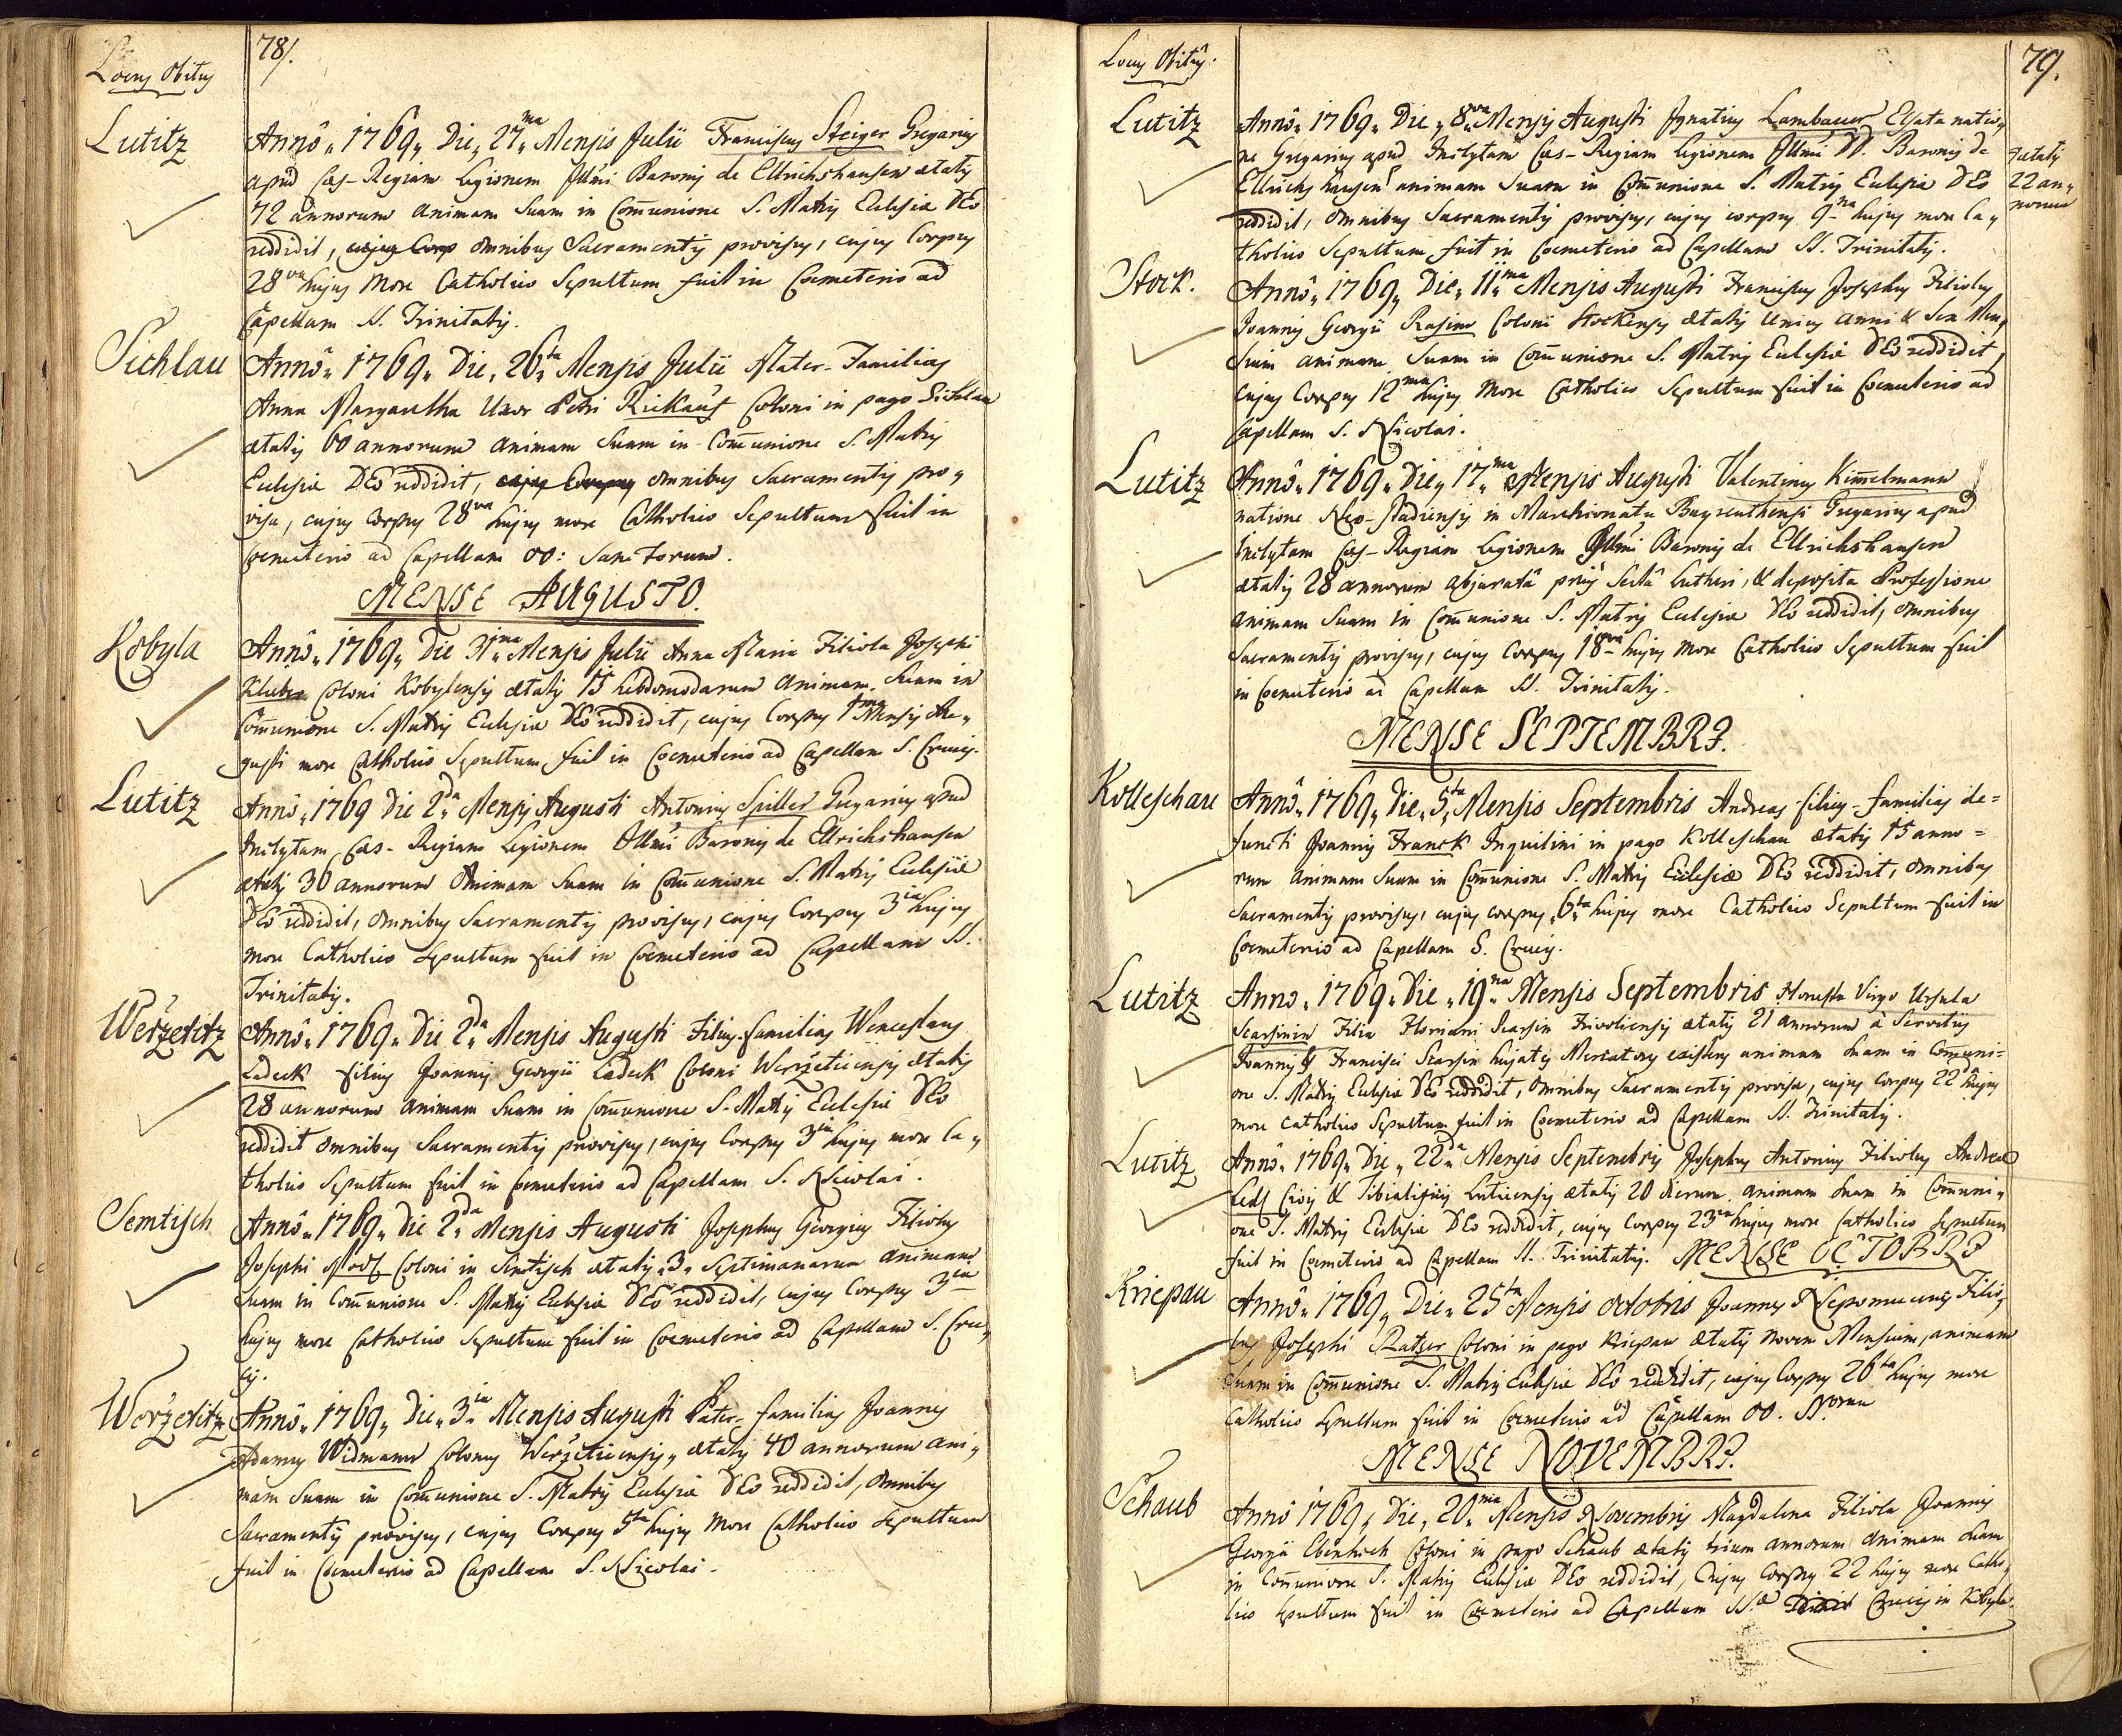 78/.
Locus Obitus
Lutitz
Annô„ 1769„ Die„ 27„ma Mensis Julii Franciscus Steiger Gregarius
apud Cæs-Regiam Legionem Illmi Baronis de Ellrichshausen ætatis
72 annorum animam Suam in Com̄unione S. Matris Eclesiæ DEo
reddidit, cujus Corp omnibus Sacramentis provisus, cujus Corpus
28va hujus More Catholico Sepultum fuit in Cœmeterio ad
Capellam SS. Trinitatis.
Sichlau
Annô„ 1769„ Die„ 26„ta Mensis Julii Mater-Familias
Anna Margaretha Uxor Petri Rickauf Coloni in pago Sichlau
ætatis 60 annorum animam Suam in Com̄unione S. Matris
Eclesiæ DEo reddidit, cujus Corpus omnibus Sacramentis pro„
visa, cujus Corpus 28va hujus more Catholico Sepultum fuit in
Cœmeterio ad Capellam OO: Sanctorum.
MENSE AUGUSTO.
Kobyla
Annô„ 1769„ Die 31„ma Mensis Julii Anna Maria Filiola Josephi
Coloni Kobylensis ætatis 15 hebdomadarum animam Suam in
Com̄unione S. Matris Eclesiæ DEo reddidit, cujus Corpus 1ma Mensis Au„
gusti more Catholico Sepultum fuit in Cœmeterio ad Capellam S. Crucis.
Lutitz
Annô„ 1769 Die 2„da Mensis Augusti Antonius Spiller Gregarius apud
Inclytam Cæs-Regiam Legionem Illmi Baronis de Ellrichshausen
ætatis 30 annorum Animam Suam in Com̄unione S. Matris Eclesiæ
DEo reddidit, omnibus Sacramentis provisus, cujus Corpus 3ia hujus
more Catholico Sepultum fuit in Cœmeterio ad Capellam SS.
Trinitatis.
Weržetitz
Annô„ 1769„ Die 2„da Mensis Augusti Filius-familias Wenceslaus
Ladeck filius Joannis Georgii Ladeck Coloni Weržeticensis ætatis
28 annorum animam Suam in Com̄unione S. Matris Eclesiæ DEo
reddidit omnibus Sacramentis provisus, cujus Corpus 3ia hujus more Ca„
tholico Sepultum fuit in Cœmeterio ad Capellam S. Nicolai.
Semtisch
Annô„ 1769„ Die 2„da Mensis Augusti Josephus Georgius Filiolus
Josephi Coloni in Semtisch ætatis „3„ Septimanarum animam
Suam in Com̄unione S. Matris Eclesiæ DEo reddidit, cujus Corpus 3ia
hujus more Catholico Sepultum fuit in Cœmeterio ad Capellam S. Cru„
cis.
Woržetitz
Annô„ 1769„ Die„ 3„ia Mensis Augusti Pater-familias Joannes
Adamus Widmann Colonus Weržeticensis„ ætatis 40 annorum ani„
mam Suam in Com̄unione S. Matris Eclesiæ DEo reddidit, omnibus
Sacramentis provisus, cujus Corpus 5ta hujus More Catholico Sepultum
fuit in Cœmeterio ad Capellam S. Nicolai.
Locus Obitûs.
79.
Lutitz
Annô„ 1769„ Die„ 8„va Mensis Augusti Ignatius Lambauer natio„
ne Gregarius apud Inclytam Cæs-Regiam Legionem Illmi DD. Baronis de
Ellrichshausen animam Suam in Com̄unione S. Matris Eclesiæ DEo
ætatis
22 an„
norum
reddidit, omnibus Sacramentis provisus, cujus corpus 9na hujus more Ca„
tholico Sepultum fuit in Cœmeterio ad Capellam SS. Trinitatis.
Stock.
Annô„ 1769„ Die„ 11„ma Mensis Augusti Franciscus Josephus Filiolus
Joannis Georgii Rasim Coloni Stockensis ætatis unius anni & Sex Men„
sium animam Suam in Com̄unione S. Matris Eclesiæ DEo reddidit,
cujus Corpus 12ma hujus More Catholico Sepultum fuit in Cœmeterio ad
Capellam S. Nicolai.
Lutitz
Annô„ 1769„ Die„ 17„ma Mensis Augusti Valentinus Kim̄elmann
natione Neo-stadiensis in Marchionatu Bayreuthensi Gregarius apud
Inclytam Cæs-Regiam Legionem Illmi Baronis de Ellrichshausen
ætatis 28 annorum abjuratâ priùs Sectâ Lutheri, & deposita Professione
animam Suam in Com̄unione S. Matris Eclesiæ DEo reddidit, omnibus
Sacramentis provisus, cujus Corpus 18va hujus More Catholico Sepultum fuit
in Cœmeterio ad Capellam SS. Trinitatis.
MENSE SEPTEMBRI.
Kolleschau
Annô„ 1769„ Die„ 5„ta Mensis Septembris Andreas filius-familias de=
functi Joannis Franck Inquilini in pago Kolleschau ætatis 15 anno=
rum animam Suam in Com̄unione S. Matris Eclesiæ DEo reddidit, omnibus
Sacramentis provisus, cujus corpus „6„ta hujus more Catholico Sepultum fuit in
Cœmeterio ad Capellam S. Crucis.
Lutitz
Anno„ 1769„ Die „19„na Mensis Septembris Honesta Virgo Ursula
Scarsinin Filia Floriani Scarsin ætatis 21 annorum à Servitiis
Joannis Francisci Scarsin hujatis Mercatoris existens animam Suam in Com̄uni=
one S. Matris Eclesiæ DEo reddidit, omnibus Sacramentis provisa, cujus Corpus 22da hujus
more catholico Sepultum fuit in Cœmeterio ad Capellam SS. Trinitatis.
Lutitz
Annô„ 1769„ Die„ 22„da Mensis Septembris Josephus Antonius Filiolus Andreæ
Civis & Tibialificis Luticensis ætatis 20 dierum animam Suam in Com̄uni„
one S. Matris Eclesiæ DEo reddidit, cujus Corpus 23ia hujus more Catholico Sepultum
fuit in Cœmeterio ad Capellam SS. Trinitatis. MENSE OCTOBRI
Kriepau
Annô„ 1769„ Die„ 25„ta Mensis Octobris Joannes Nepomucenus Filio„
lus Josephi Ratzer Coloni in pago Kriepau ætatis novem Mensium, animam
Suam in Com̄unione S. Matris Eclesiæ DEo reddidit, cujus Corpus 26ta hujus more
Catholico Sepultum fuit in Cœmeterio ad Capellam OO. SSorum
MENSE NOVEMBRI.
Schaub
Annô 1769„ Die„ 20„ma Mensis Novembris Magdalena Filiola Joannis
Georgii Coloni in pago Schaub ætatis trium annorum animam Suam
in Com̄unione S. Matris Eclesiæ DEo reddidit, Cujus Corpus 22 hujus more Catho„
lico Sepultum fuit in Cœmeterio ad Capellam SSæ Crucis in Kobyla.